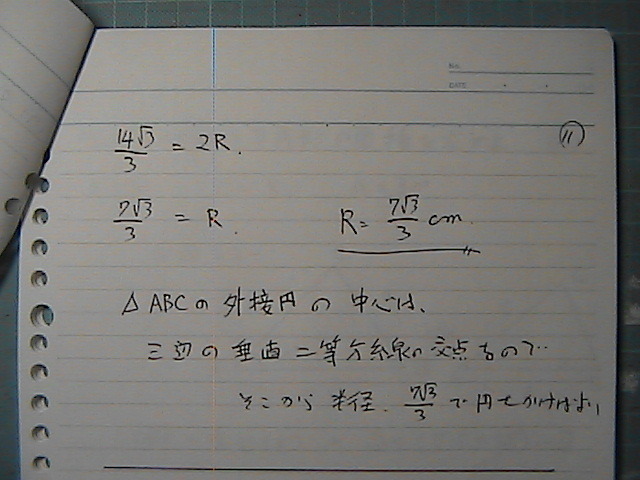 No.
DATE
⑪
14√3/3 = 2R.
7√3/3 = R. R= 7√3/3 cm
△ABCの外接円の中心は、
三辺の垂直二等分線の交点なので
そこから半径 7√3/3 で円をかけばよい